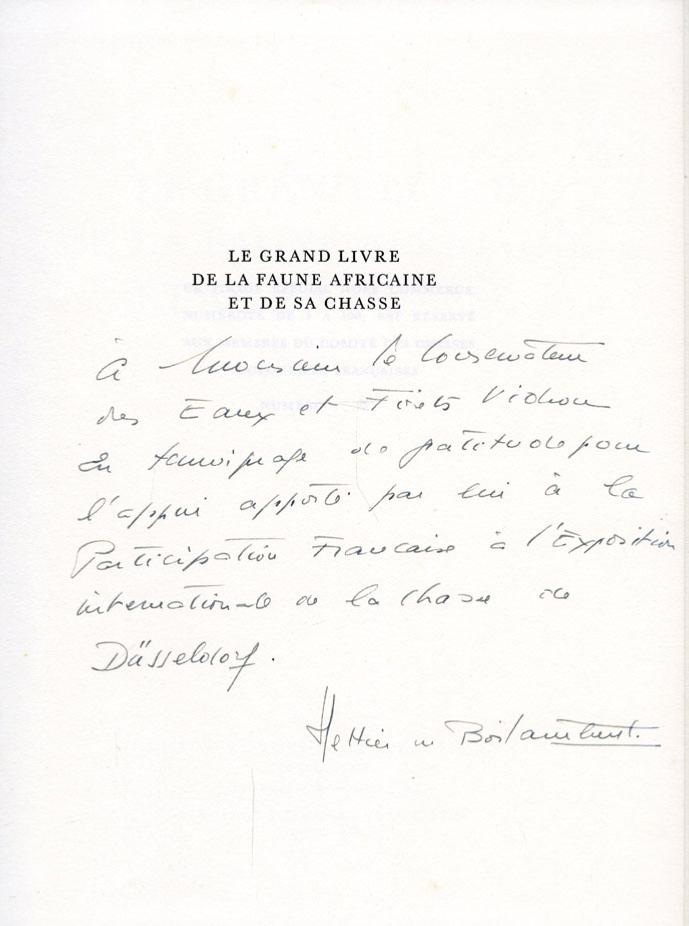 LE GRAND LIVRE
DE LA FAUNE AFRICAINE
ET DE SA CHASSE
À Monsieur le Conservateur
des Eaux et Forêts Vidron
En temoignage de gratitude pour
l'appui apporté par lui à la
Participation Francaise à l'Exposition
internationale de la Chasse de
Düsseldorf.
Hettier de Boislambert.